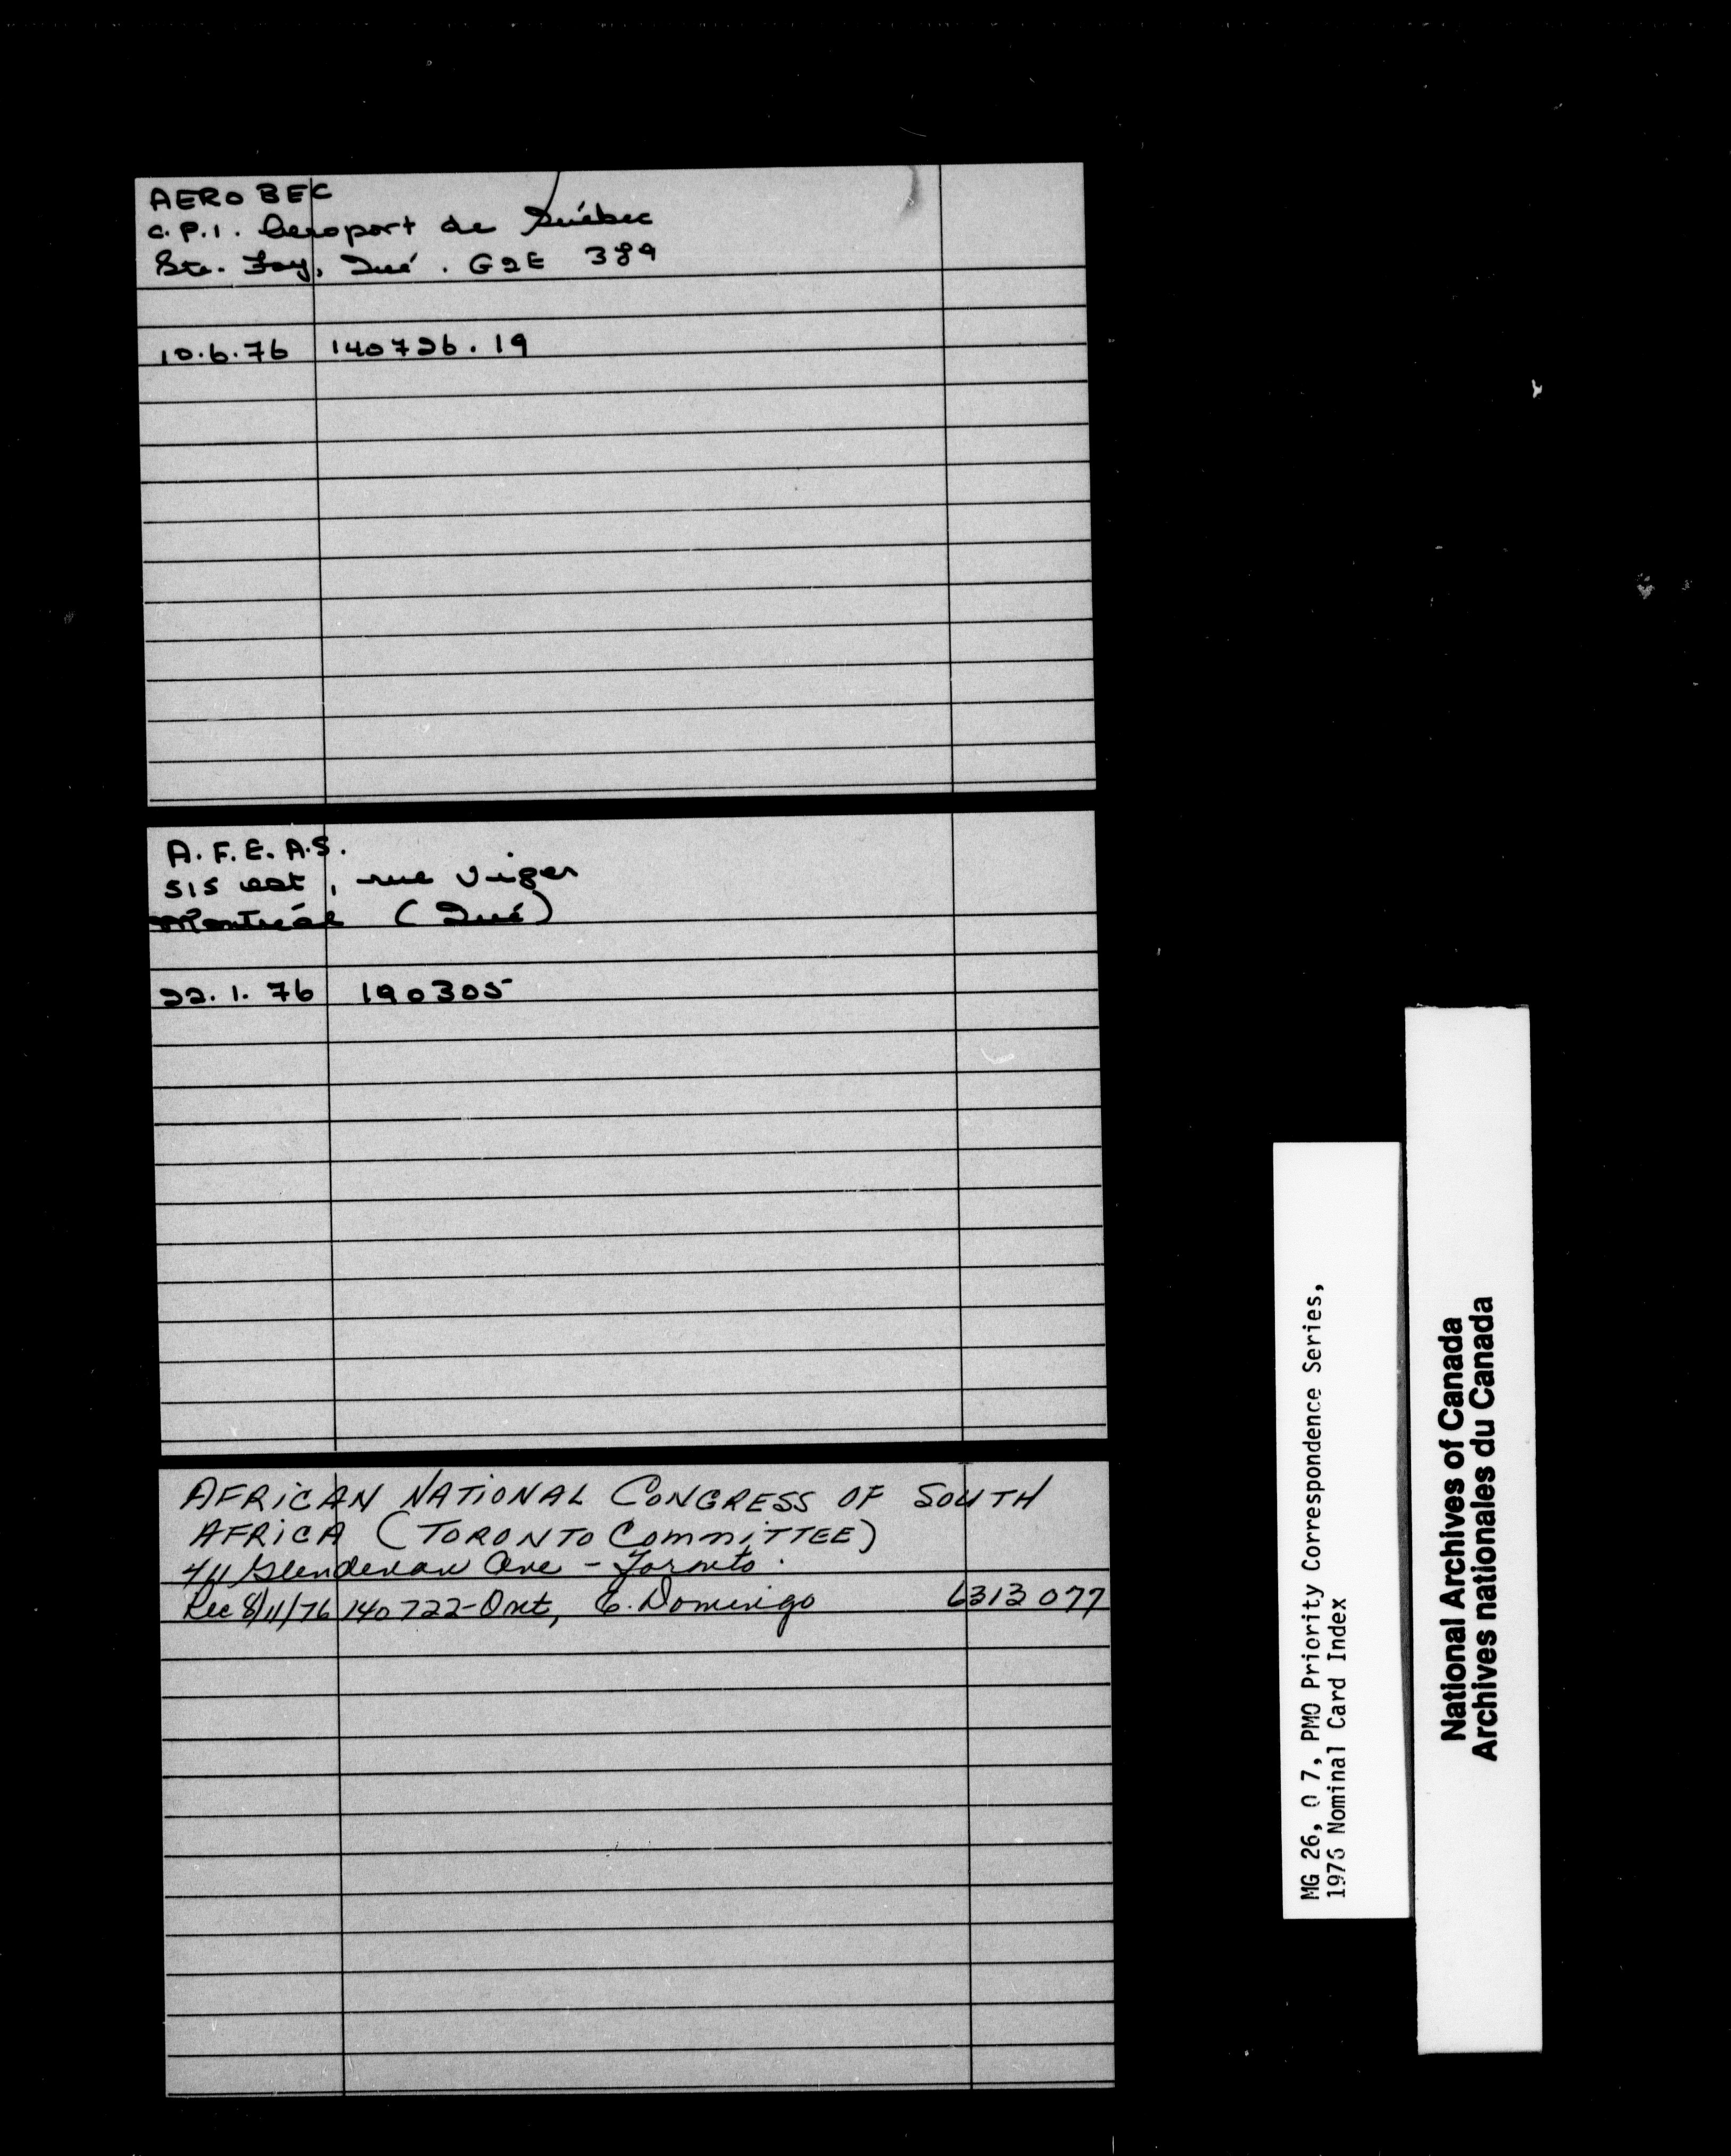 AERO BEC
C.P.1. Aeroport de Québec
Ste. Foy, Qué. G2E 3B9
10.6.76 140726.19
A.F.E.A.S.
515 est, rue Viger
Montréal (Qué)
22.1.76 190305
AFRICAN NATIONAL CONGRESS OF SOUTH
AFRICA (TORONTO COMMITTEE)
411 Glendenan Ave - Toronto.
Rec 8/11/76 140722-Ont, C. Domingo 6313 077
MG 26, O 7, PMO Priority Correspondence Series,
1976 Nominal Card Index
National Archives of Canada
Archives nationales du Canada